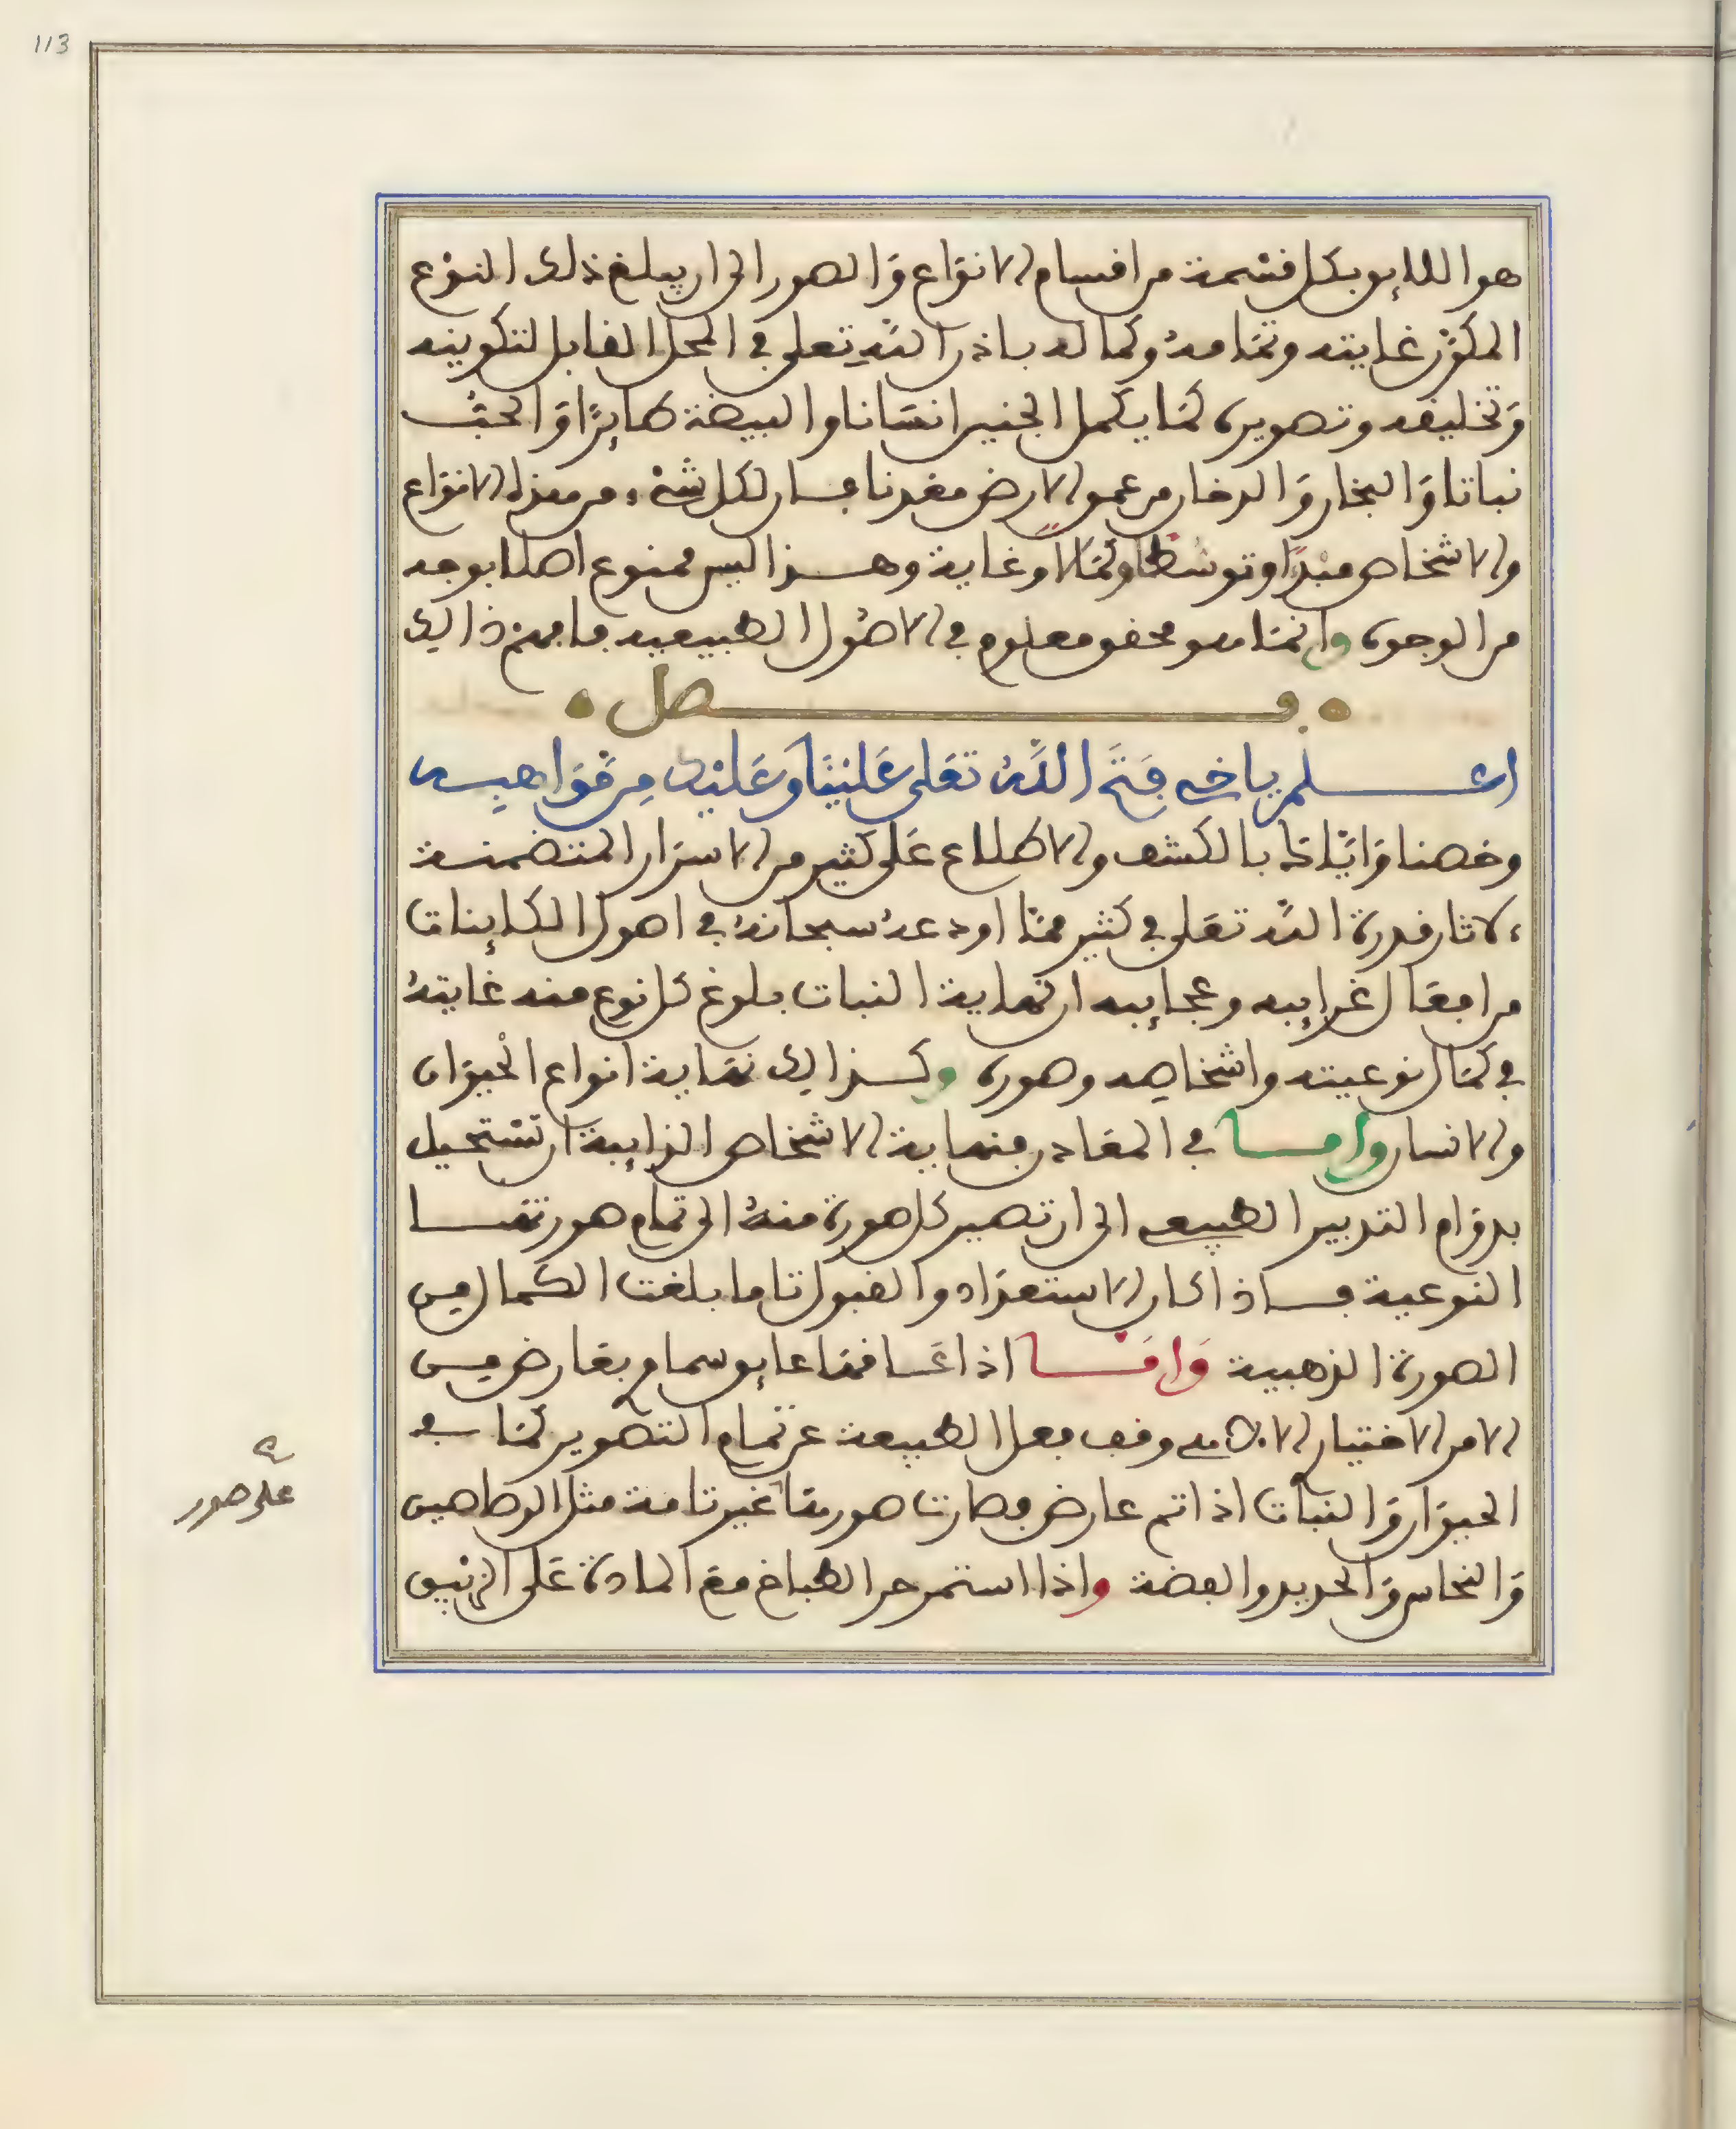 113
هو اللايق بكل قسمة من اقسام الانواع والصور الى ان يبلغ ذلك النوع
المكون غايته وتمامه وكماله باذن الله تعلى في المحل القابل لتكوينه
وتخليقه وتصويره كما يكمل الجنين انسانا والبيضة طايرا والحب
نباتا والبخار والدخان من عمق الارض معدنا فان لكل شيء من هذه الانواع
والاشخاص مبدا وتوسطا وكمالا وغاية وهذا ليس ممنوع اصلا بوجه
من الوجوه وانما هو محقق معلوم في الاصول الطبيعيه فافهم ذالك
فصل
اعلم ياخي فتح الله تعلى علينا وعليك من مواهبه
وخصنا واياك بالكشف والاطلاع على كثير من الاسرار المتضمنة
لاثار قدرة الله تعلى في كثير مما اودعه سبحانه في اصول الكاينات
من افعال غرايبه وعجايبه ان نهاية النبات بلوغ كل نوع منه غايته
في كمال نوعيته واشخاصه وصوره وكذالك نهاية انواع الحيوان
والانسان واما في المعادن فنهاية الاشخاص الذايبة ان تستحيل
بدوام التدبير الطبيعي الى ان تصير كل صورة منه الى تمام صورتها
النوعية فاذا كان الاستعداد والقبول تاما بلغت الكمال من
الصورة الذهبية واما اذا عاقها عايق سماوي بعارض من
الامر الاختيار الالاهي وقف فعل الطبيعة عن تمام التصوير كما في
الحيوان والنبات اذا تم عارض فصارت صورها غير تامة مثل الرصاصين
والنحاس والحديد والفضة واذا استمر حر الطباخ مع المادة على الزيبق
على صور